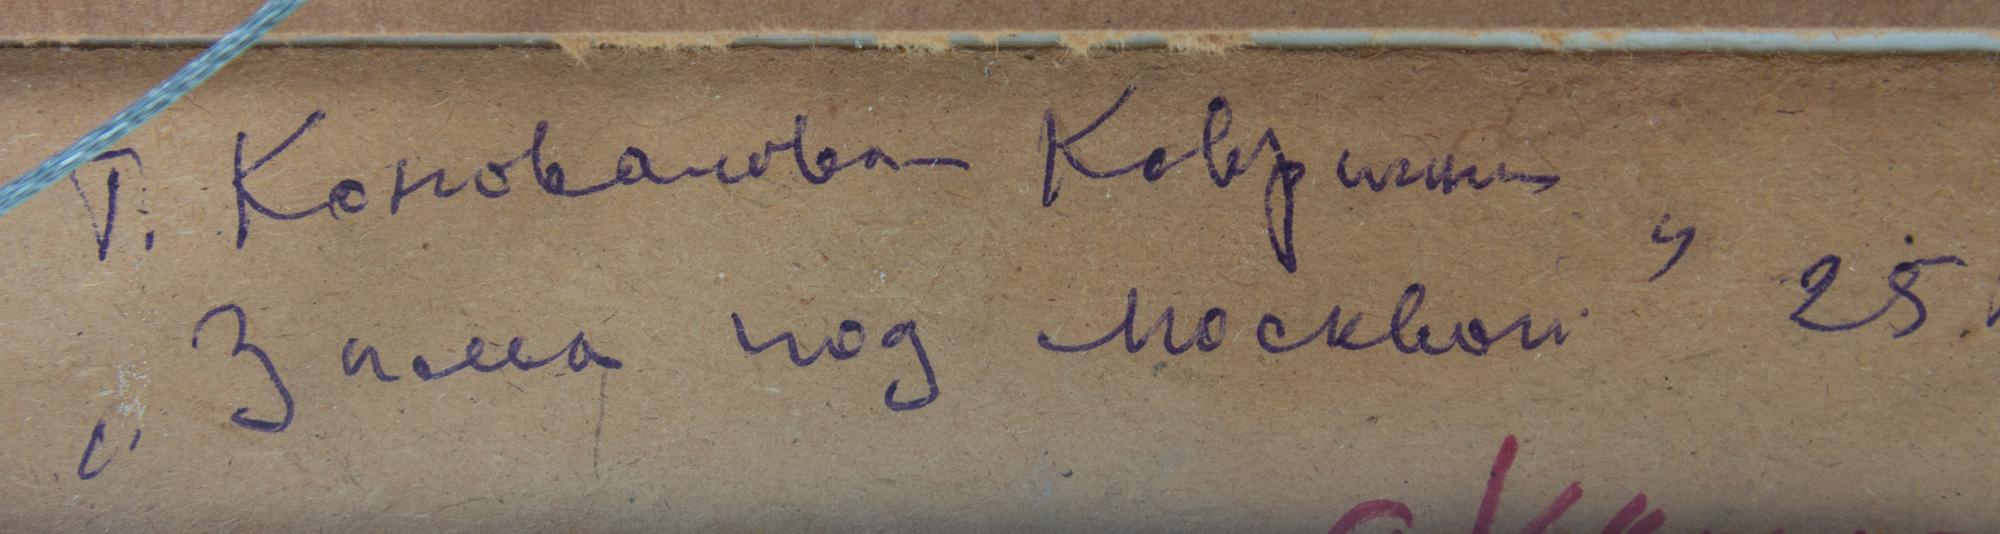 Т. Коновалова Ковригина
„Зима под Москвой" 25